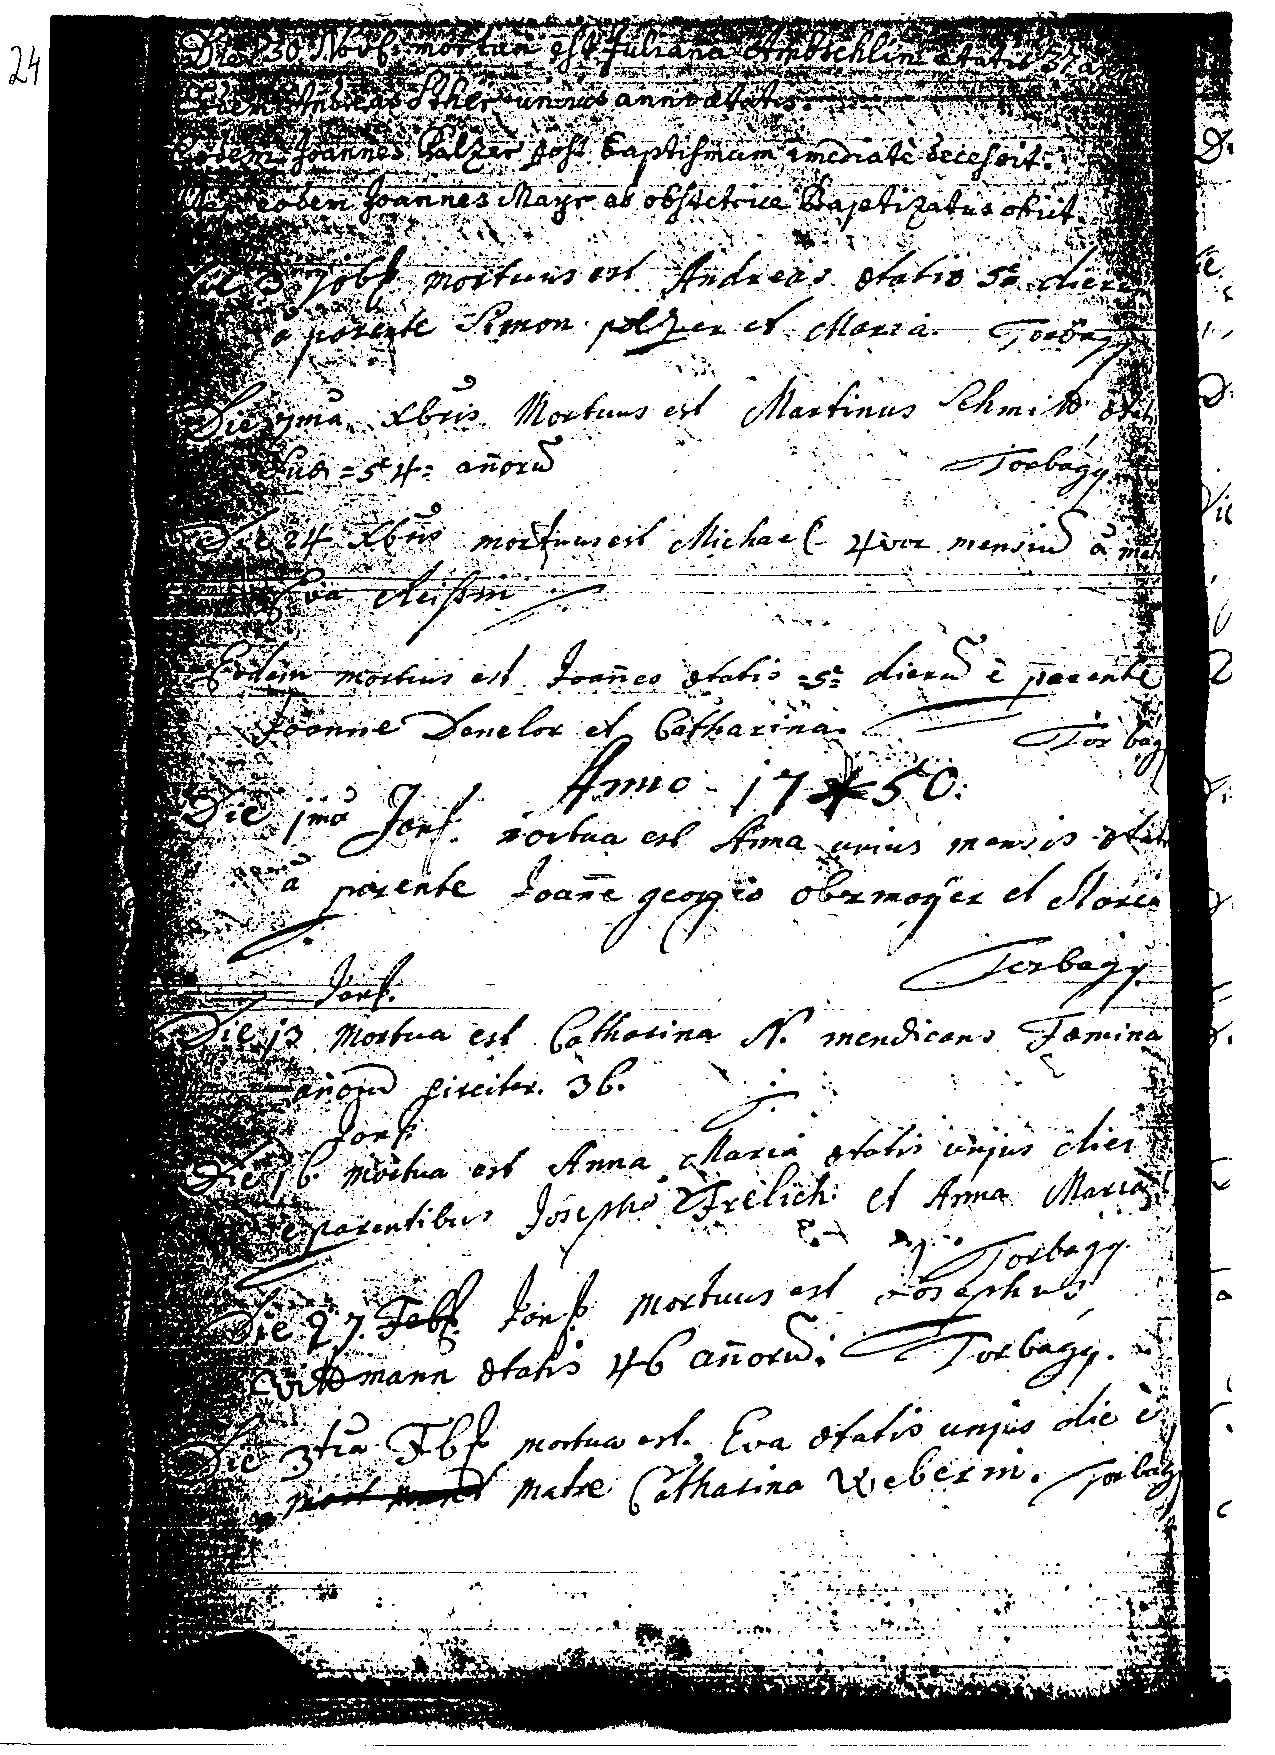 24
Die 30 Novb. mortua est Juliana Ambschlin etatis 57 an
Eodem Andreas unius anni ætatis.
Eodem Joannes Balzer post Baptismum imediatè decessit.
eodem Joannes Mayr ab obstetrice Baptizatus obiit.
Die 3 Xob mortuus est Andreas etatis 5 dierum
à parente Simon polzer et Maria. Torbagy
Die 7ma Xbris Mortuus est Martinus Schmidt etat
suæ =54= añorũ Torbágy.
Die 24 Xbris mortuus est Michael 4vor mensiũ à mat
Eva
Eodem mortuus est Joañes etatis =5= dierũ è parente
Joanne Denelor et Catharina. Torbagy
Anno 1750.
Die 1ma Janſ. mortua est Anna unius mensis etat
à parente Joañe georgio obermaÿer et Maria
Torbagy.
Janſ.
Die 13 Mortua est Catharina N. mendicans Fæmina
añorũ circiter. 36.
Janſ.
Die 16 mortua est Anna Maria etatis unjus diei
è parentibus Josepho Frelich et Anna Maria
Torbagy.
Die 27. Febſ. Janſ. mortuus est Josephus
Wittmann etatis 46 añorũ. Torbagy.
Die 3tia Fbſ mortua est. Eva etatis unjus die è
matre Catharina Weberin. Torbagy